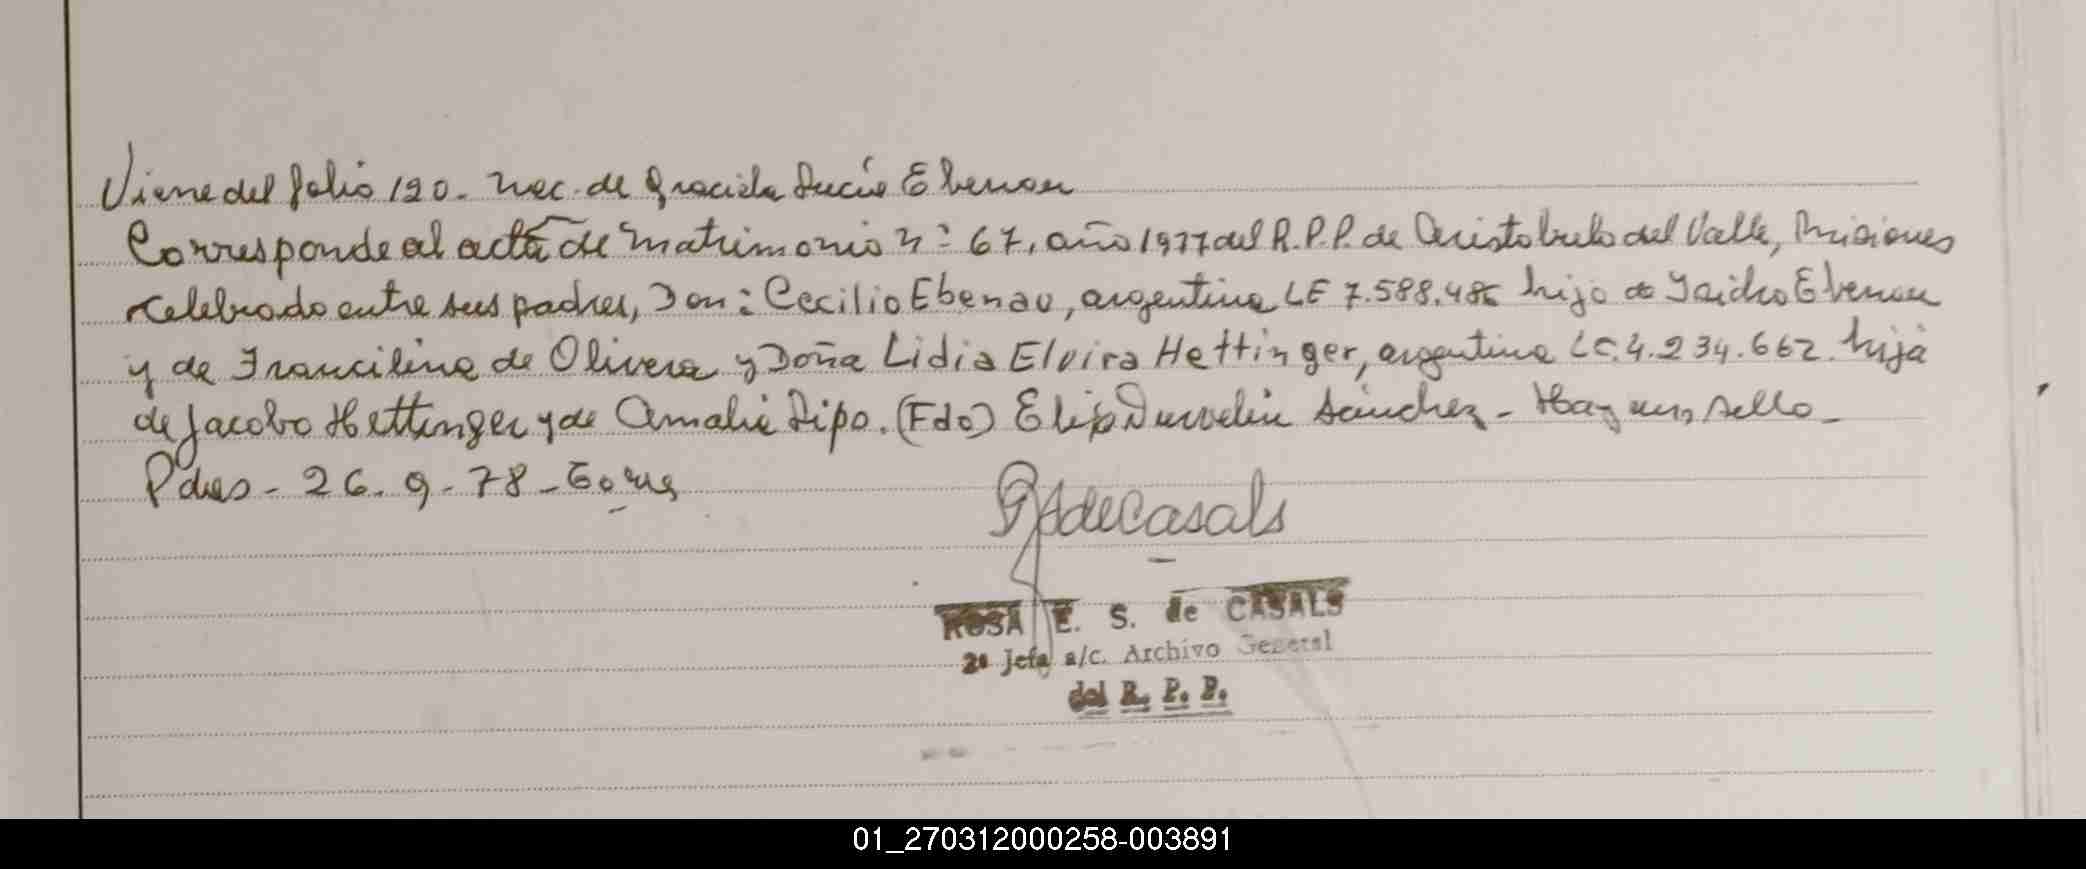 Viene del folio 120. Nac. de Graciela Lucía Ebenau
Corresponde al acta de matrimonio nº 67, año 1977 del R.P.P. de Aristobulo del Valle, Misiones
celebrado entre sus padres, Don: Cecilio Ebenau, argentino LE 7.588.486 hijo de Isidro Ebenau
y de Francilina de Olivera y Doña Lidia Elvira Hettinger, argentina LC. 4.234.662. hija
de Jacobo Hettinger y de Amalia Lipo. (Fdo) Sánchez - Hay un sello -
Pdas - 26 - 9 - 78 -
RdeCasals
ROSA E. S. de CASALS
2ª Jefa a/c. Archivo General
del R. P. P.
01_270312000258-003891